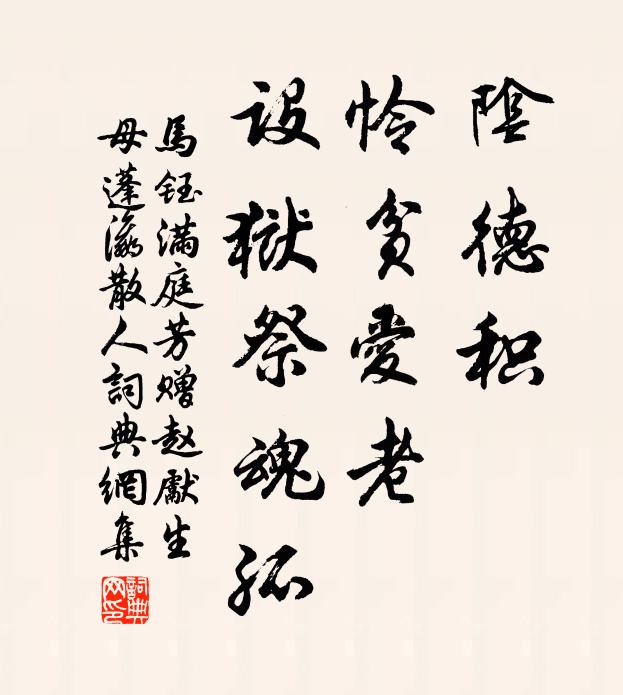 陰德积
怜貧愛老
設獄祭魂孤
馬鈺滿庭芳赠赵獻生
母蓬瀛散人詞典網集
詞典网印